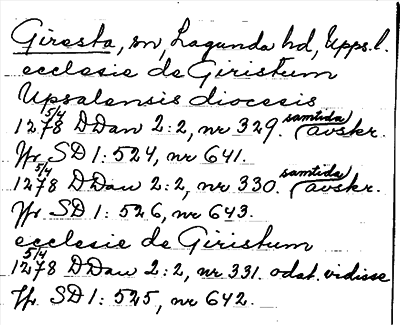 Giresta, sn, Lagunda hd, Upps. l.
ecclesie de Giristum
Upsalensis diocesis
5/4 1278 DDan 2:2, nr 329. samtida avskr.
Jfr SD 1: 524, nr 641.
5/4 1278 DDan 2:2, nr 330. samtida avskr.
Jfr SD 1: 526, nr 643.
ecclesie de Giristum
5/4 1278 DDan 2:2, nr 331. odat. vidisse
Jfr SD 1: 525, nr 642.